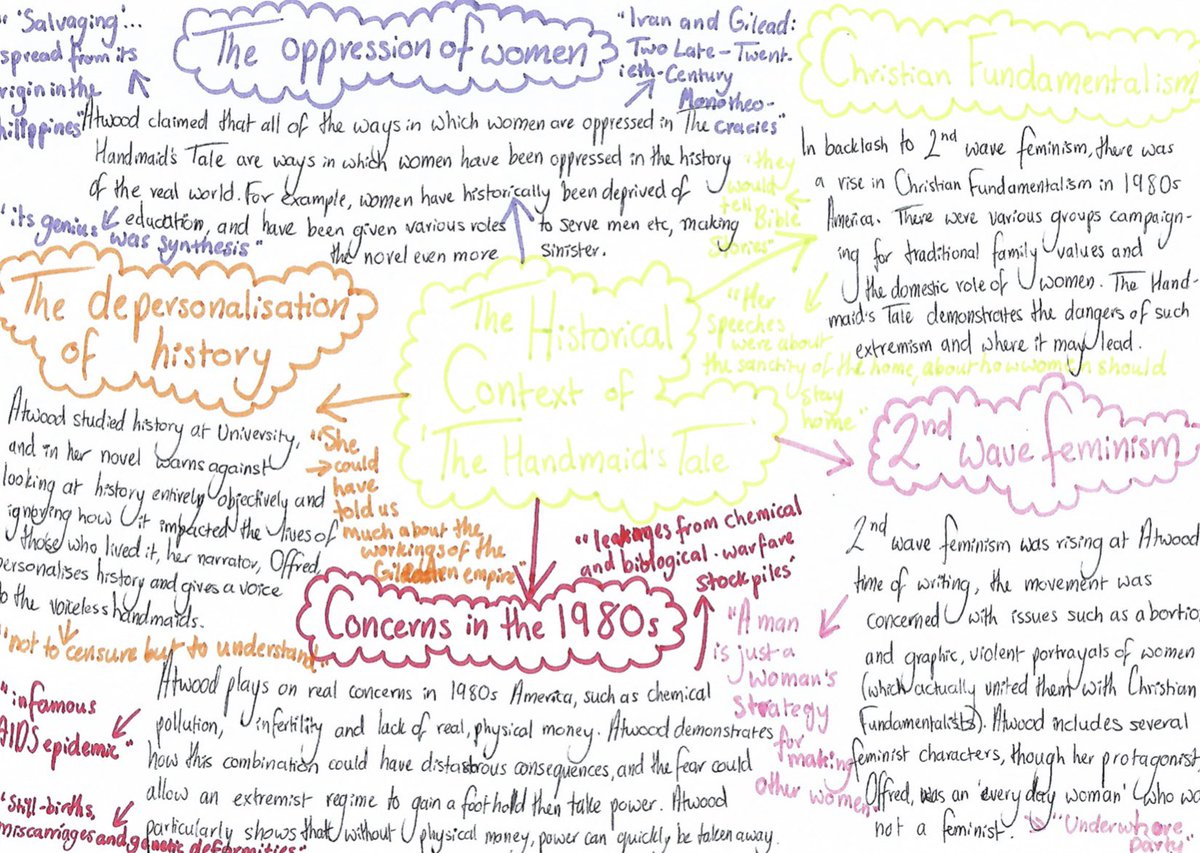 The Historical
Context of
'The Handmaid's Tale
The oppression of women
" 'Salvaging'...
spread from its
rigin in the
hilippines"
"Ivan and Gilead:
Two Late-Twent-
ieth-Century
Monotheo-
cracies"
Atwood claimed that all of the ways in which women are oppressed in The
Handmaid's Tale are ways in which women have been oppressed in the history
of the real world. For example, women have historically been deprived of
education, and have been given various roles to serve men etc, making
the novel even more sinister.
"its genius was synthesis"
Christian Fundamentalism
In backlash to 2nd wave feminism, there was
a rise in Christian Fundamentalism in 1980s
America. There were various groups campaign-
ing for traditional family values and
the domestic role of women. The Hand-
maid's Tale demonstrates the dangers of such
extremism and where it may lead.
"they
would
tell Bible
stories"
"Her
speeches
were about
the sanctity of the home, about how women should
stay
home"
The depersonalisation
of history
Atwood studied history at University,
and in her novel warns against
looking at history entirely objectively and
ignoring how it impacted the lives of
those who lived it, her narrator, Offred,
personalises history and gives a voice
to the voiceless handmaids.
"She
could
have
told us
much about the
workings of the
Gileadean empire"
"not to censure but to understand"
2nd wave feminism
2nd wave feminism was rising at Atwood
time of writing, the movement was
concerned with issues such as abortio
and graphic, violent portrayals of women
(which actually united them with Christian
Fundamentalists). Atwood includes several
feminist characters, though her protagonist,
Offred, was an 'every day woman' who wa
not a feminist.
"A man
is just a
woman's
strategy
for
making
other women"
"Underwhore
party"
Concerns in the 1980s
"leakages from chemical
and biological-warfare
stockpiles"
Atwood plays on real concerns in 1980s America, such as chemical
pollution, infertility and lack of real, physical money. Atwood demonstrates
how this combination could have distastrous consequences, and the fear could
allow an extremist regime to gain a foothold then take power. Atwood
particularly shows that without physical money, power can quickly be taken away.
"infamous
AIDS epidemic"
"Still-births,
miscarriages and genetic deformities"